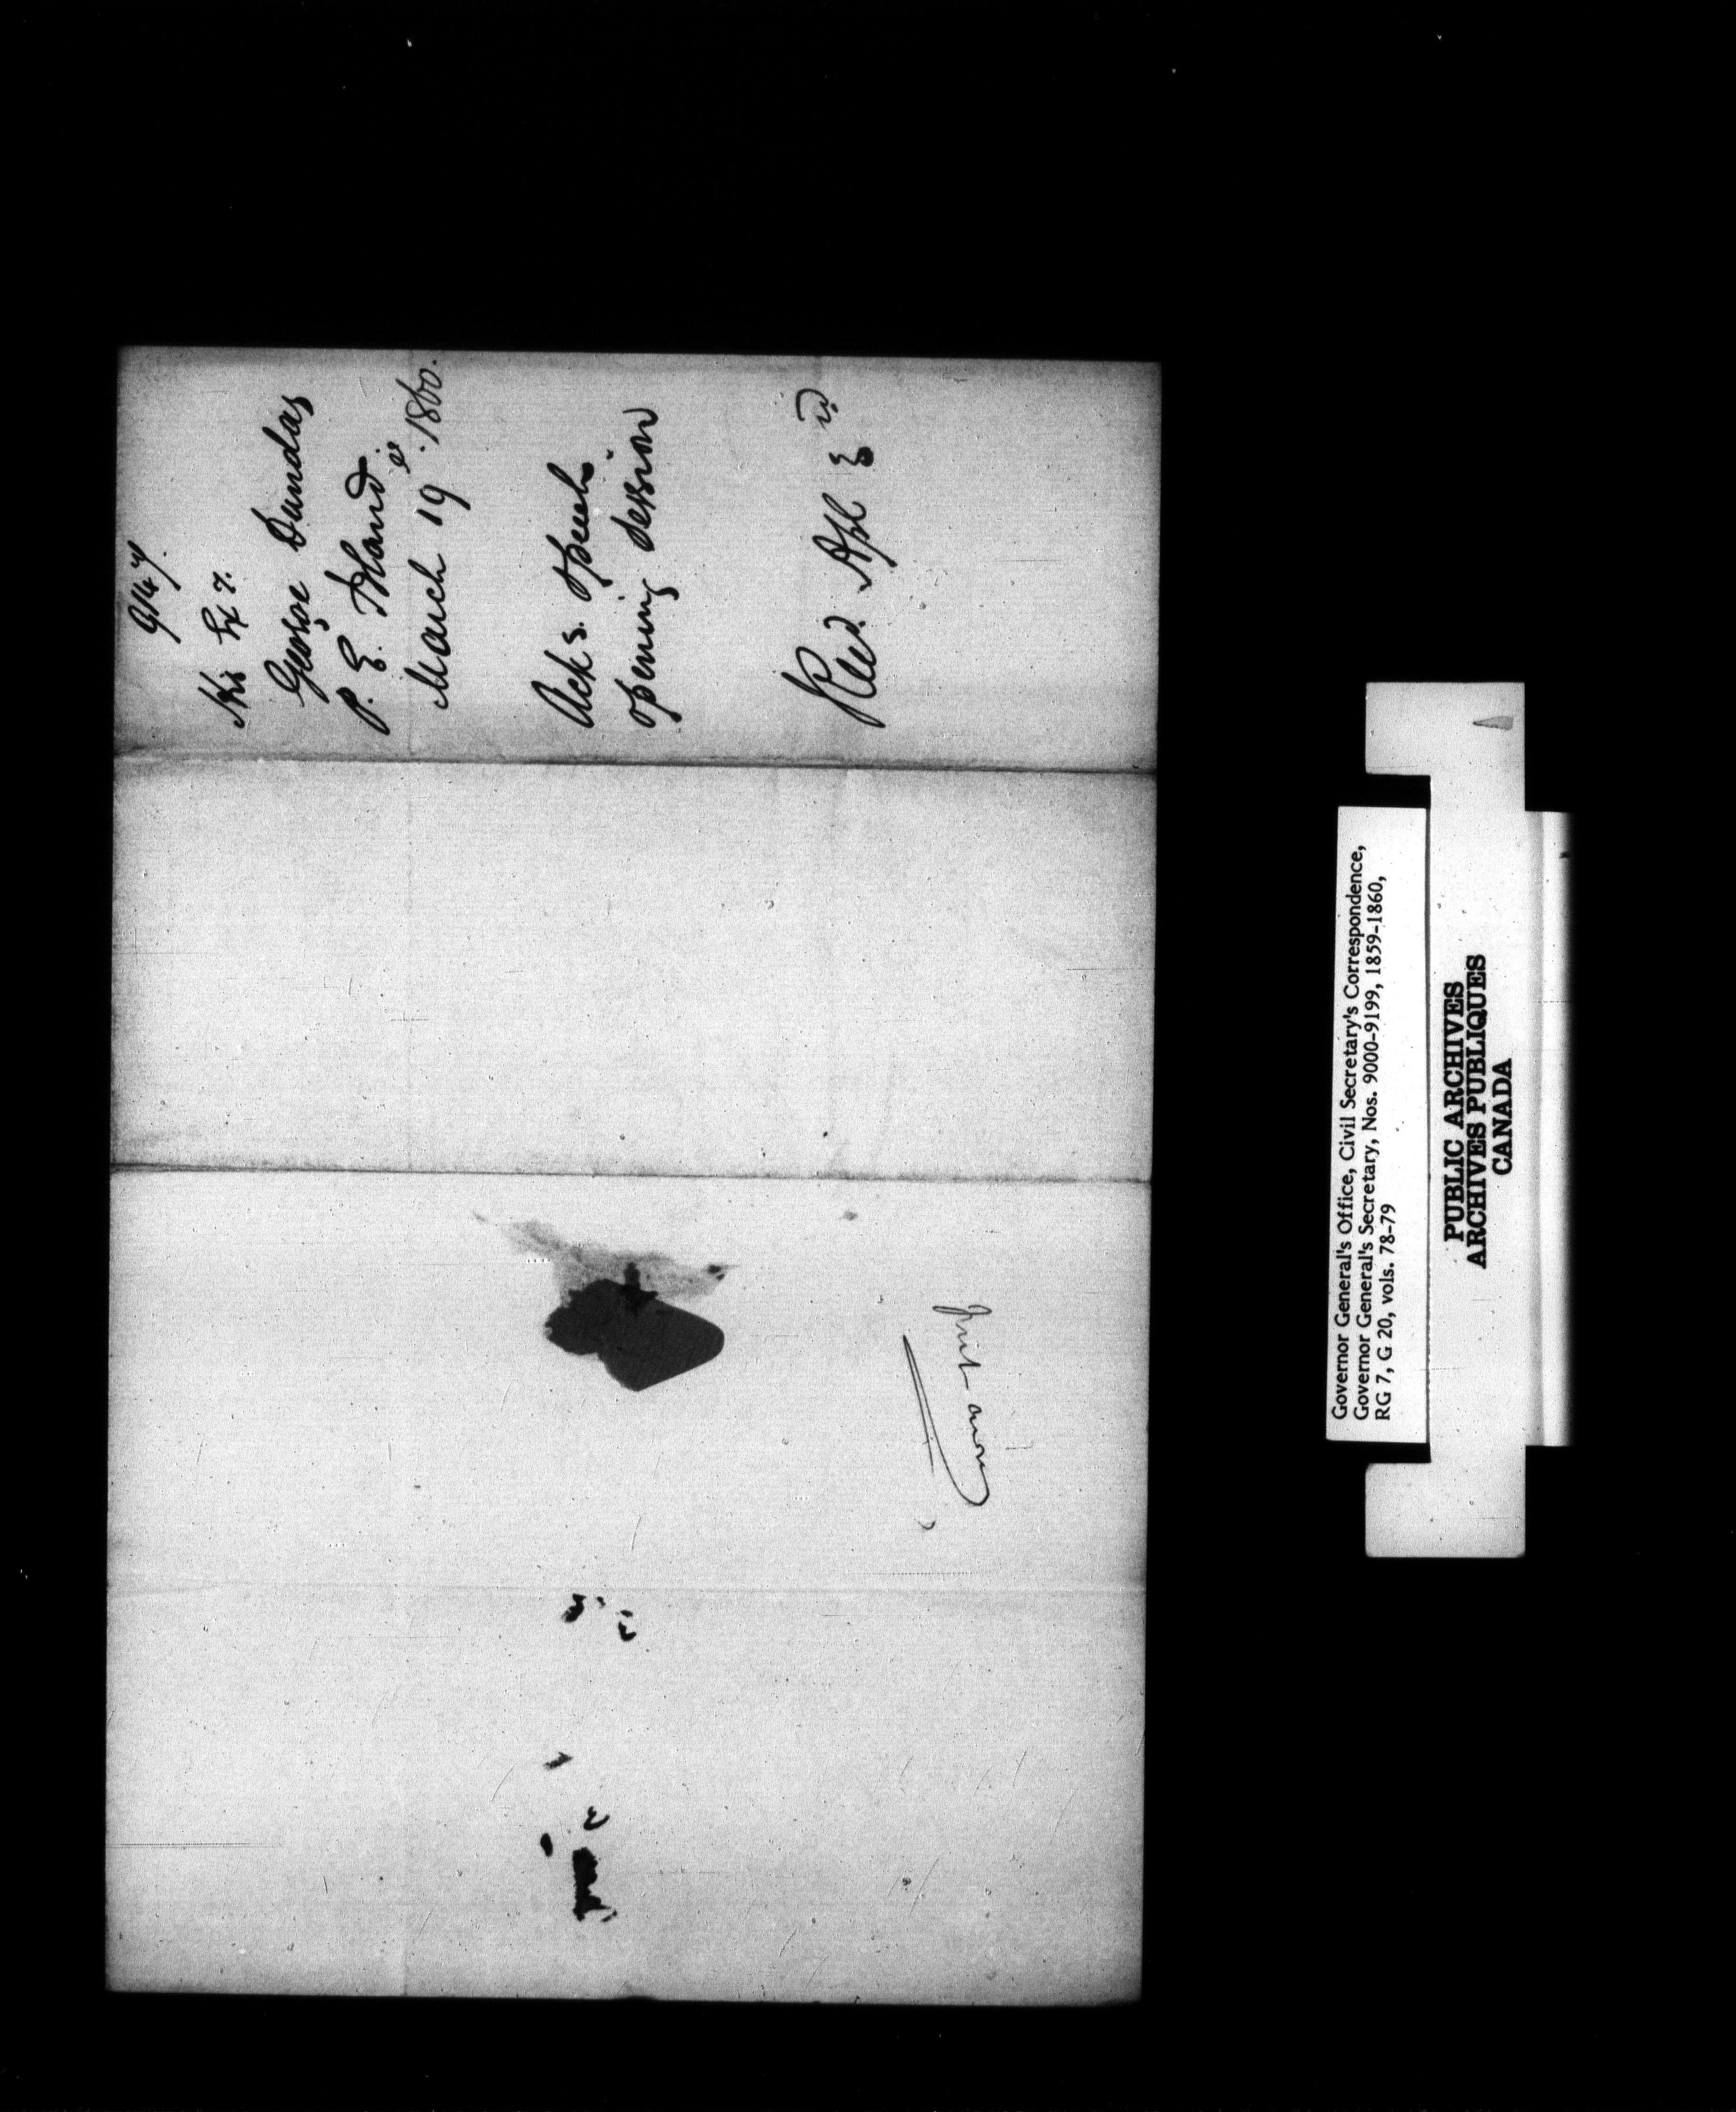 9147.
His Exy.
George Dundas
P. E. Island.
March 19th. 1860.
Acks. Speech
opening Session
Recd. Apl 3rd
Governor General's Office, Civil Secretary's Correspondence,
Governor General's Secretary, Nos. 9000-9199, 1859-1860,
RG 7, G 20, vols. 78-79
PUBLIC ARCHIVES
ARCHIVES PUBLIQUES
CANADA